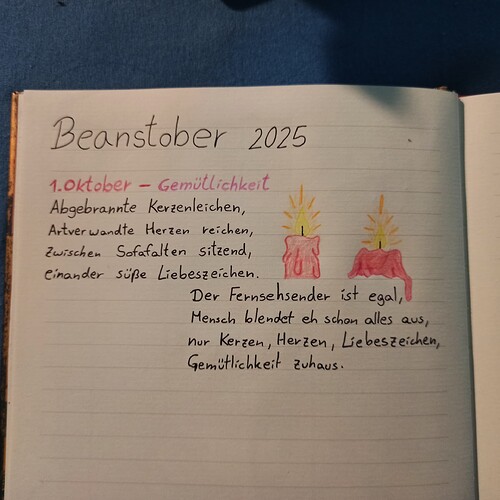 Beanstober 2025
1. Oktober – Gemütlichkeit
Abgebrannte Kerzenleichen,
Artverwandte Herzen reichen,
zwischen Sofafalten sitzend,
einander süße Liebeszeichen.
Der Fernsehsender ist egal,
Mensch blendet eh schon alles aus,
nur Kerzen, Herzen, Liebeszeichen,
Gemütlichkeit zuhaus.